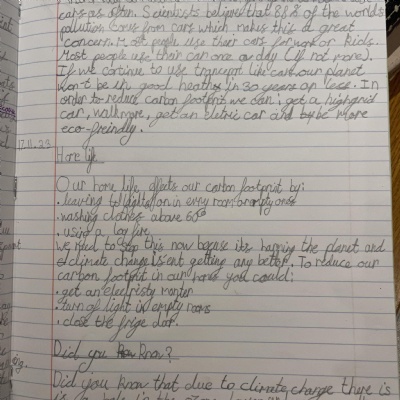 cars as often. Scientists believe that 81% of the world's
pollution comes from cars which makes this a great
concern. Most people use their cars for work or kids.
Most people use their car once a day (if not more).
If we continue to use transport like cars our planet
won't be in good heathe in 30 years or less. In
order to reduce carbon footprint we can: get a highbrid
car, walk more, get an eletric car and be more
eco-freindly.
17.11.23
Home life
Our home life effects our carbon footprint by:
• leaving light on in every room empty ones
• washing clothes above 60°
• using a log fire
we need to stop this now becase its harming the planet and
climate change isent getting any better. To reduce our
carbon footprint in our homes you could:
• get an electristy monter
• turn of light in empty rooms
• close the frige door.
Did you Know?
Did you know that due to climate change thyre is